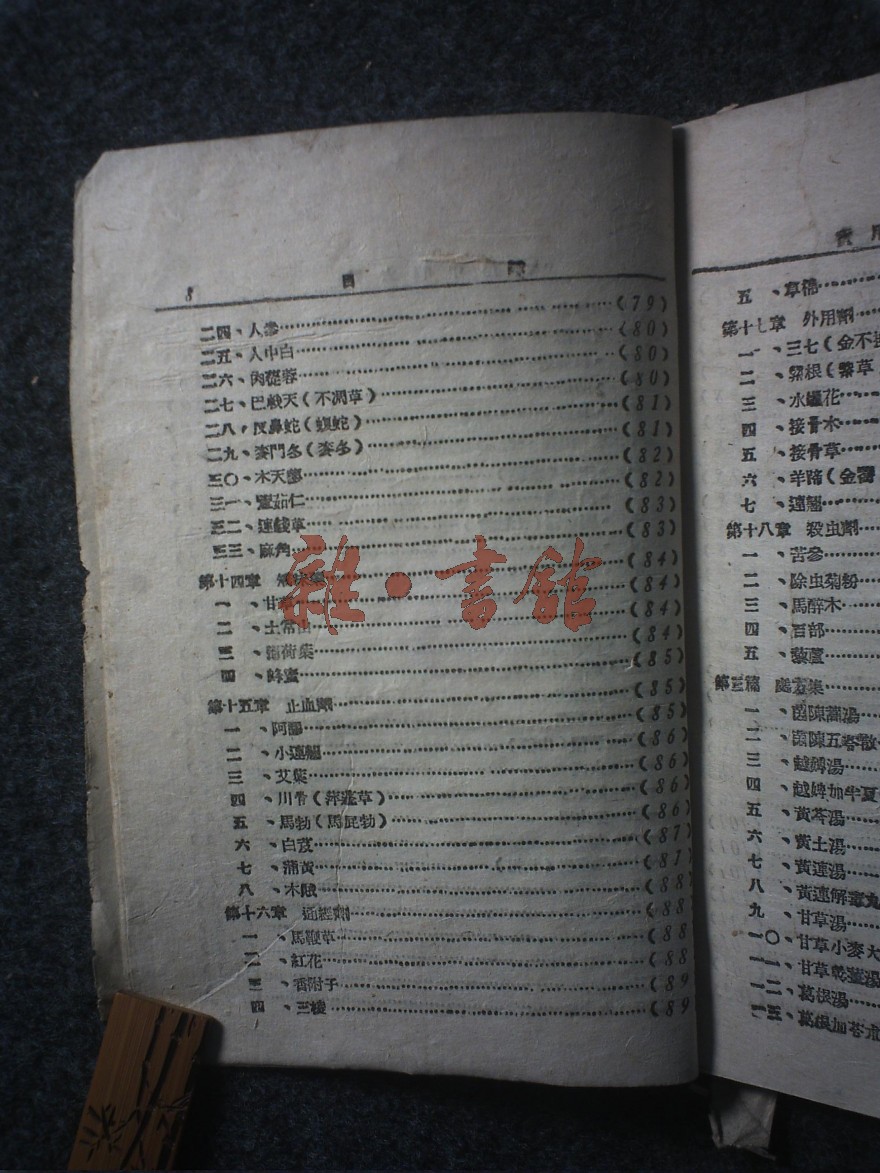 8 目 錄
二四、人參……(79)
二五、人中白……(80)
二六、肉蓯蓉……(80)
二七、巴戟天(不凋草)……(80)
二八、反鼻蛇(蝮蛇)……(81)
二九、麥門冬(麥冬)……(81)
三〇、木天蓼……(82)
三一、蕤茹仁……(82)
三二、連錢草……(83)
三三、麻角……(83)
第十四章 ……(84)
一、甘草……(84)
二、土常山……(84)
三、薄荷葉……(84)
四、蜂蜜……(85)
第十五章 止血劑……(85)
一、阿膠……(85)
二、小連翹……(86)
三、艾葉……(86)
四、川骨(萍蓬草)……(86)
五、馬勃(馬屁勃)……(86)
六、白芨……(87)
七、蒲黃……(87)
八、木賊……(88)
第十六章 通經劑……(88)
一、馬鞭草……(88)
二、紅花……(88)
三、香附子……(89)
四、三棱……(89
雜·書館
實用
五、草……
第十七章 外用劑……
一、三七(金不
二、紫根(紫草
三、水罏花……
四、接骨木……
五、接骨草……
六、羊蹄(金
七、連翹……
第十八章 殺虫劑……
一、苦參……
二、除虫菊粉
三、馬醉木……
四、百部……
五、藜蘆……
第三篇 處方集……
一、茵陳蒿湯……
二、茵陳五苓散
三、越婢湯……
四、越婢加半夏
五、黃芩湯……
六、黃土湯……
七、黃連湯……
八、黃連解毒丸
九、甘草湯……
一〇、甘草小麥大
一一、甘草乾薑湯
一二、葛根湯……
一三、葛根加苓朮